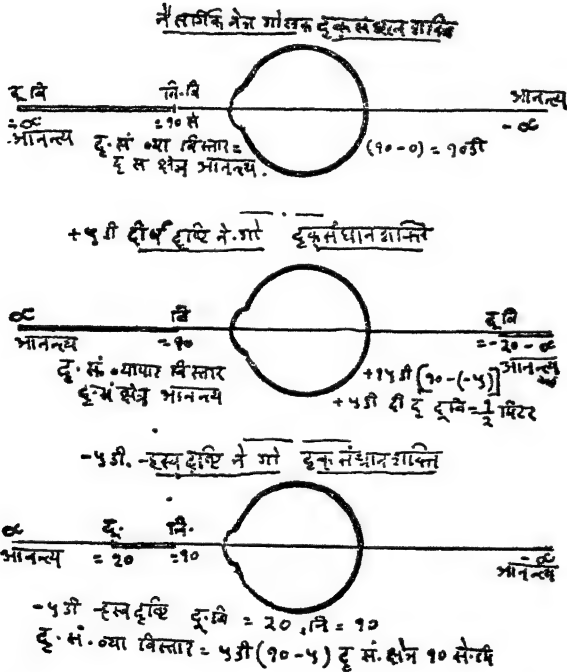 नैसर्गिक नेत्र गोलक दृक् संधान शक्ति
दू बि नि. बि आनन्त्य
= ∝ = १० सें - ∝
आनन्त्य
दृ. सं व्या विस्तार = (१०-०) = १०डी
दृ स क्षेत्र आनन्त्य.
+५ डी दीर्घ दृष्टि ने. गो दृक् संधान शक्ति
∝ बि दू बि
आनन्त्य = १० = -२० - ∝
आनन्त्य
दृ. सं. व्यापार विस्तार +१५ डी [१०-(-५)]
दृ. सं क्षेत्र आनन्त्य +५ डी दी दृ दू बि = १/२ मिटर
-५ डी. -ह्रस्व दृष्टि ने गो दृक् संधान शक्ति
∝ दू. नि. - ∝
आनन्त्य = २० = १० आनन्त्य
-५ डी -ह्रस्व दृष्टि दू. बि = २०, नि = १०
दृ. सं. व्या विस्तार = ५ डी (१०-५) दृ सं. क्षेत्र १० से. मि